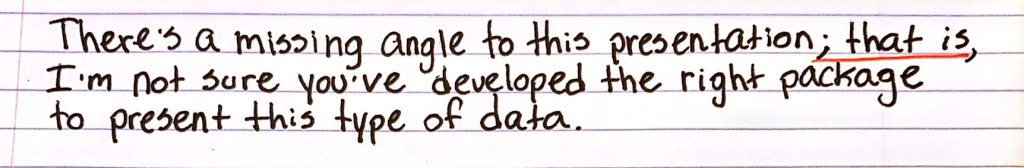 There's a missing angle to this presentation; that is,
I'm not sure you've developed the right package
to present this type of data.